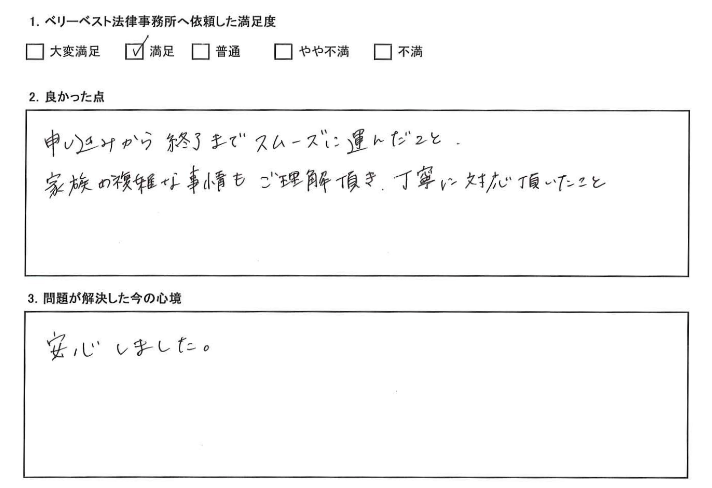 1. ベリーベスト法律事務所へ依頼した満足度
□ 大変満足 ☑ 満足 □ 普通 □ やや不満 □ 不満
2. 良かった点
申し込みから終了までスムーズに運んだこと.
家族の複雑な事情もご理解頂き、丁寧に対応頂いたこと
3. 問題が解決した今の心境
安心しました。